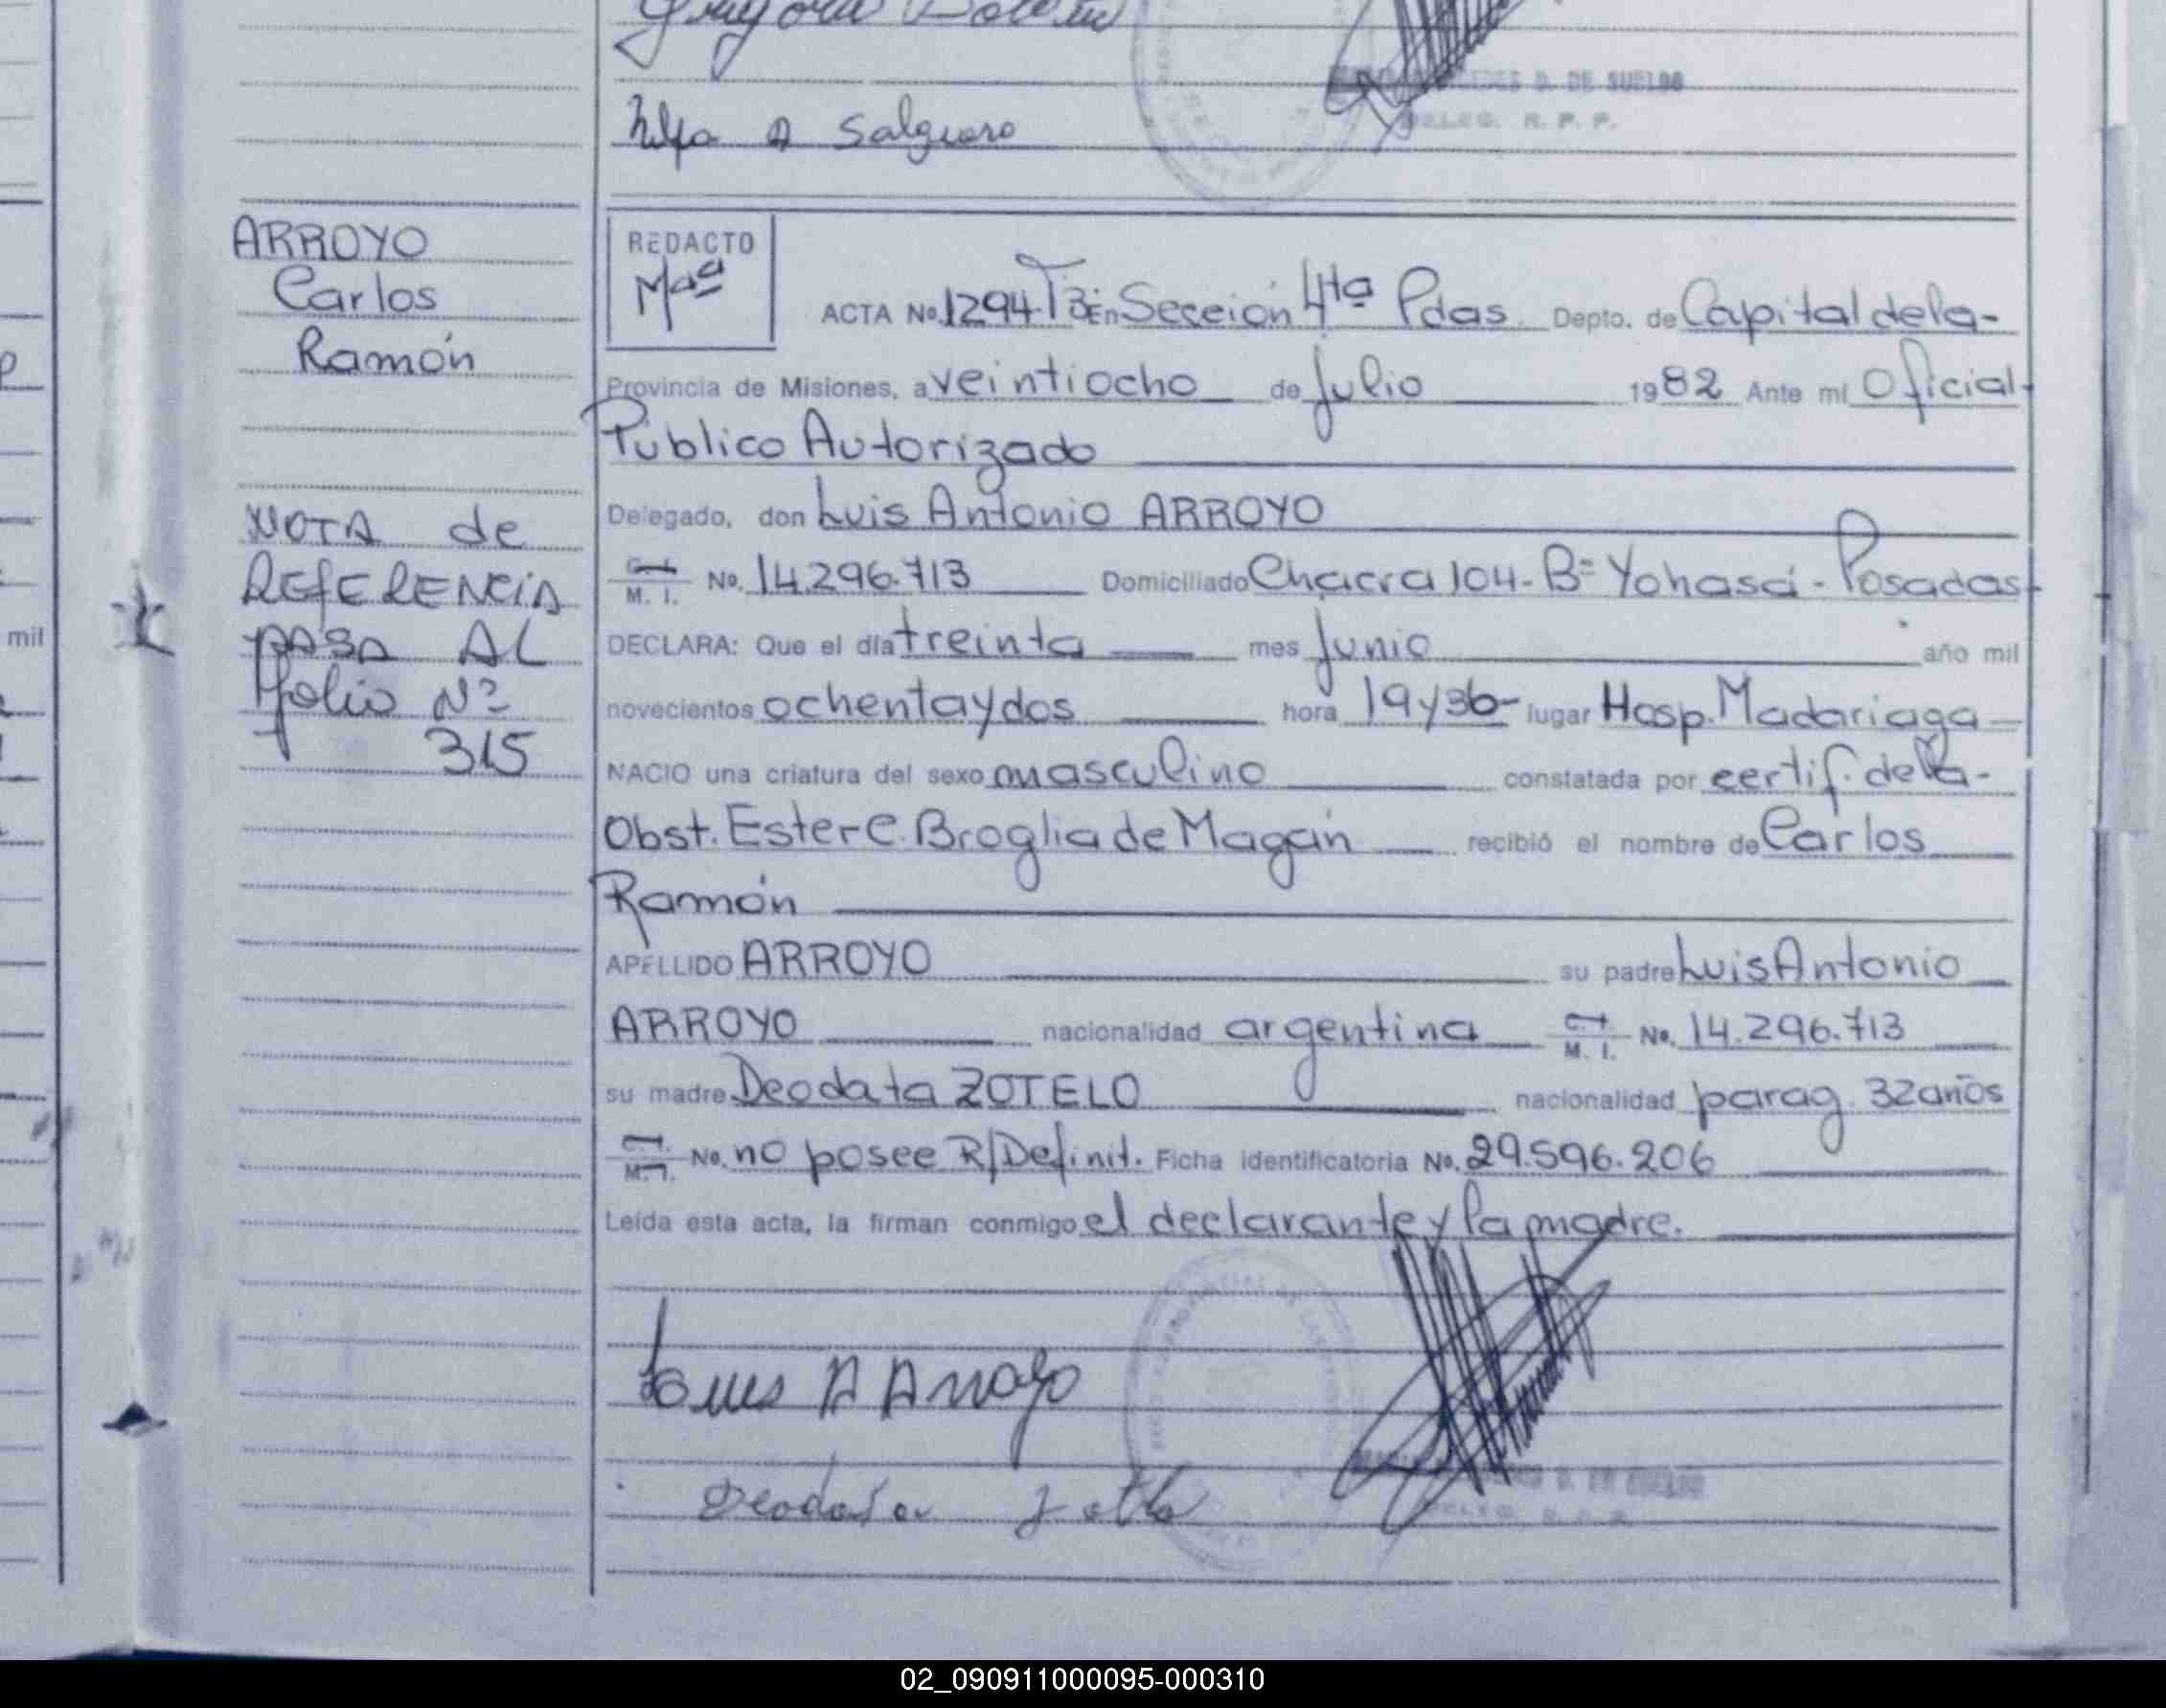 A Salguero
D. DE SUELDO
DELEG. R. P. P.
ARROYO
Carlos
Ramón
NOTA de
REFERENCIA
PASA AL
folio Nº
315
mil
REDACTO
Mªª
ACTA No. 1294 T3 En Sección 4ta Pdas. Depto. de Capital de la-
Provincia de Misiones, a veintiocho de Julio 1982 Ante mí Oficial
Público Autorizado
Delegado, don Luis Antonio ARROYO
M. I. No. 14.296.713 Domiciliado Chacra 104-Bº Yohasá-Posadas
DECLARA: Que el día treinta mes Junio año mil
novecientos ochenta y dos hora 19 y 36 lugar Hosp. Madariaga
NACIO una criatura del sexo masculino constatada por certif. de la-
Obst. Ester C. Broglia de Magán recibió el nombre de Carlos
Ramón
APELLIDO ARROYO su padre Luis Antonio
ARROYO nacionalidad argentina C. I. M. I. No. 14.296.713
su madre Deodata ZOTELO nacionalidad parag. 32 años
C. I. M. I. No. no posee R/Definit. Ficha identificatoria No. 29.596.206
Leída esta acta, la firman conmigo el declarante y la madre.
Luis A Arroyo
Deodata Zotelo
02_090911000095-000310